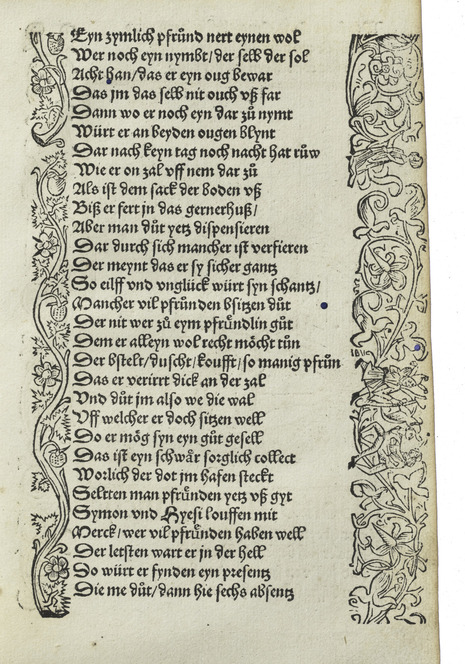 Eyn zymlich pfrůnd nert eynen wol
Wer noch eyn nymbt/der selb der sol
Acht han/das er eyn oug bewar
Das jm das selb nit ouch vß far
Dann wo er noch eyn dar zů nymt
Würt er an beyden ougen blynt
Dar nach keyn tag noch nacht hat růw
Wie er on zal vff nem dar zů
Als ist dem sack der boden vß
Biß er fert jn das gernerhuß/
Aber man důt yetz dispensieren
Dar durch sich mancher ist verfieren
Der meynt das er sy sicher gantz
So eilff vnd vnglück würt syn schantz/
Mancher vil pfrůnden bsitzen důt
Der nit wer zů eym pfrůndlin gůt
Dem er alleyn wol recht möcht tůn
Der bstelt/duscht/koufft/so manig pfrůn
Das er verirrt dick an der zal
Vnd důt jm also we die wal
Vff welcher er doch sitzen well
Do er mög syn eyn gůt gesell
Das ist eyn schwår sorglich collect
Worlich der dot jm hafen steckt
Seltten man pfrůnden yetz vß gyt
Symon vnd Hyesi louffen mit
Merck/wer vil pfrůnden haben well
Der letsten wart er jn der hell
So würt er fynden eyn presentz
Die me důt/dann hie sechs absentz